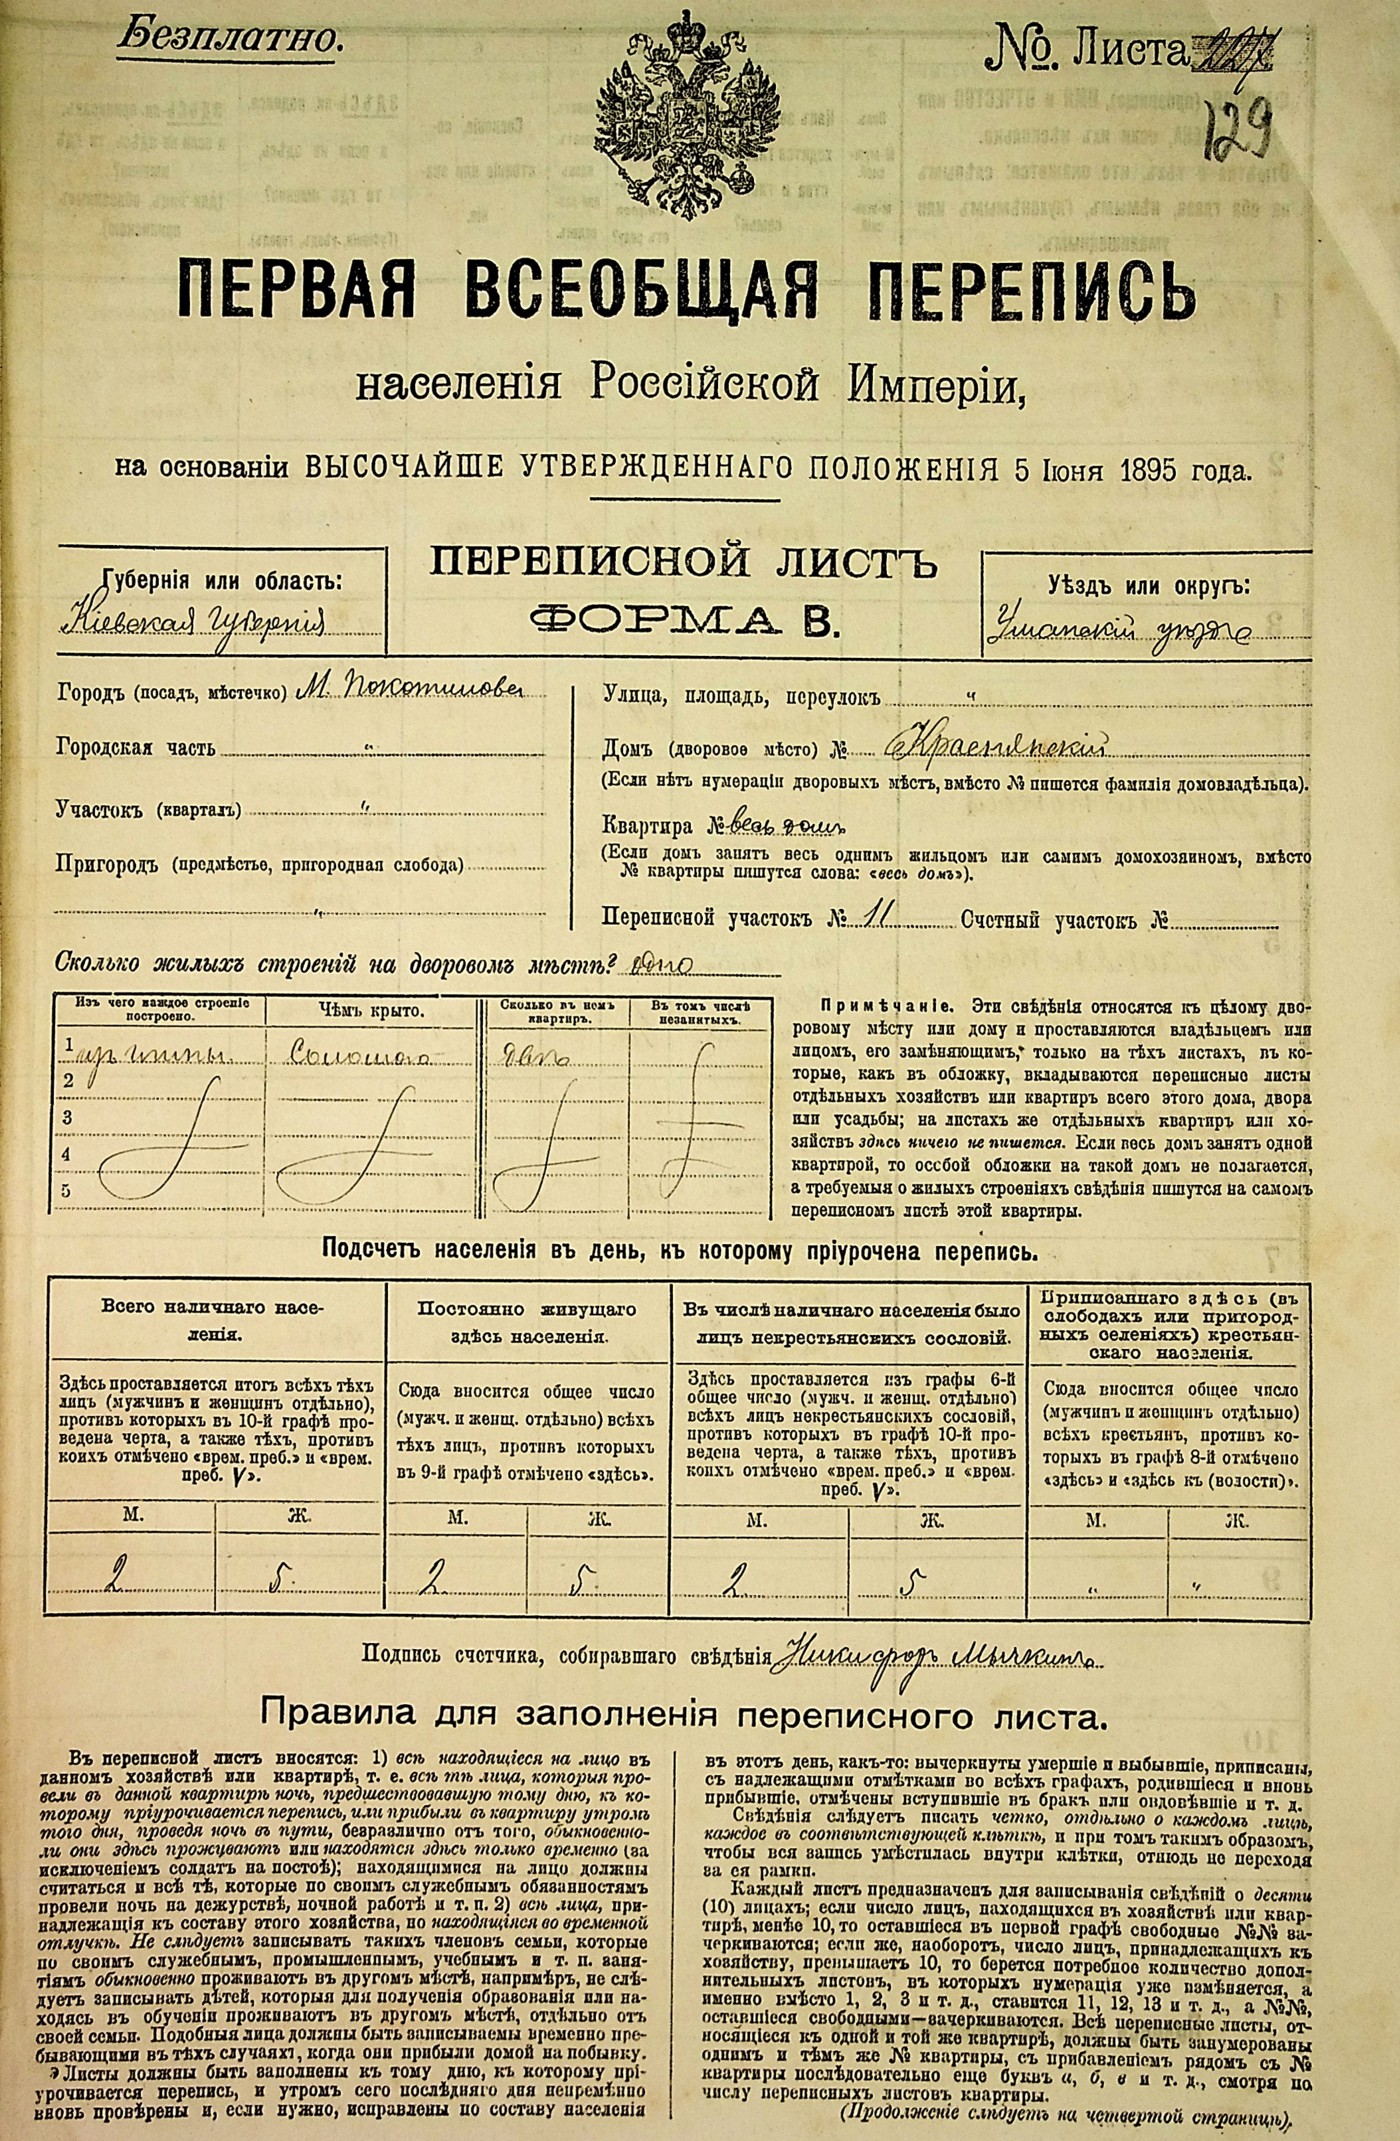 Безплатно.
№. Листа 227
129
ПЕРВАЯ ВСЕОБЩАЯ ПЕРЕПИСЬ
населенія Россійской Имперіи,
на основаніи ВЫСОЧАЙШЕ УТВЕРЖДЕННАГО ПОЛОЖЕНІЯ 5 Іюня 1895 года.
ПЕРЕПИСНОЙ ЛИСТЪ
ФОРМА В.
Губернія или область:
Кіевская губернія
Уѣздъ или округъ:
Уманскій уѣздъ
Городъ (посадъ, мѣстечко) М. Покотилово
Городская часть "
Участокъ (кварталъ) "
Пригородъ (предмѣстье, пригородная слобода)
"
Улица, площадь, переулокъ "
Домъ (дворовое мѣсто) № Краснянскій
(Если нѣтъ нумераціи дворовыхъ мѣстъ, вмѣсто № пишется фамилія домовладѣльца).
Квартира № весь домъ
(Если домъ занятъ весь однимъ жильцомъ или самимъ домохозяиномъ, вмѣсто
№ квартиры пишутся слова: «весь домъ»).
Переписной участокъ № 11 Счетный участокъ №
Сколько жилыхъ строеній на дворовомъ мѣстѣ? одно
Изъ чего каждое строеніе построено. Чѣмъ крыто. Сколько въ немъ квартиръ. Въ томъ числѣ незанятыхъ.
1 изъ глины Соломою
2
3
4
5
Примѣчаніе. Эти свѣдѣнія относятся къ цѣлому дво-
ровому мѣсту или дому и проставляются владѣльцемъ или
лицомъ, его замѣняющимъ, только на тѣхъ листахъ, въ ко-
торые, какъ въ обложку, вкладываются переписные листы
отдѣльныхъ хозяйствъ или квартиръ всего этого дома, двора
или усадьбы; на листахъ же отдѣльныхъ квартиръ или хо-
зяйствъ здѣсь ничего не пишется. Если весь домъ занятъ одной
квартирой, то особой обложки на такой домъ не полагается,
а требуемыя о жилыхъ строеніяхъ свѣдѣнія пишутся на самомъ
переписномъ листѣ этой квартиры.
Подсчетъ населенія въ день, къ которому пріурочена перепись.
Всего наличнаго насе-
ленія.
Здѣсь проставляется итогъ всѣхъ тѣхъ
лицъ (мужчинъ и женщинъ отдѣльно),
противъ которыхъ въ 10-й графѣ про-
ведена черта, а также тѣхъ, противъ
коихъ отмѣчено «врем. преб.» и «врем.
преб. V».
Постоянно живущаго
здѣсь населенія.
Сюда вносится общее число
(мужч. и женщ. отдѣльно) всѣхъ
тѣхъ лицъ, противъ которыхъ
въ 9-й графѣ отмѣчено «здѣсь».
Въ числѣ наличнаго населенія было
лицъ некрестьянскихъ сословій.
Здѣсь проставляется изъ графы 6-й
общее число (мужч. и женщ. отдѣльно)
всѣхъ лицъ некрестьянскихъ сословій,
противъ которыхъ въ графѣ 10-й про-
ведена черта, а также тѣхъ, противъ
коихъ отмѣчено «врем. преб.» и «врем.
преб. V».
Приписаннаго здѣсь (въ
слободахъ или пригород-
ныхъ селеніяхъ) крестьян-
скаго населенія.
Сюда вносится общее число
(мужчинъ и женщинъ отдѣльно)
всѣхъ крестьянъ, противъ ко-
торыхъ въ графѣ 8-й отмѣчено
«здѣсь» и «здѣсь къ (волости)».
М. Ж. М. Ж. М. Ж. М. Ж.
2 5 2 5 2 5 " "
Подпись счетчика, собиравшаго свѣдѣнія Никифоръ Мычкинъ
Правила для заполненія переписного листа.
Въ переписной листъ вносятся: 1) всѣ находящіеся на лицо въ
данномъ хозяйствѣ или квартирѣ, т. е. всѣ тѣ лица, которыя про-
вели въ данной квартирѣ ночь, предшествовавшую тому дню, къ ко-
торому пріурочивается перепись, или прибыли въ квартиру утромъ
того дня, проведя ночь въ пути, безразлично отъ того, обыкновенно-
ли они здѣсь проживаютъ или находятся здѣсь только временно (за
исключеніемъ солдатъ на постоѣ); находящимися на лицо должны
считаться и всѣ тѣ, которые по своимъ служебнымъ обязанностямъ
провели ночь на дежурствѣ, ночной работѣ и т. п. 2) всѣ лица, при-
надлежащія къ составу этого хозяйства, но находящіяся во временной
отлучкѣ. Не слѣдуетъ записывать такихъ членовъ семьи, которые
по своимъ служебнымъ, промышленнымъ, учебнымъ и т. п. заня-
тіямъ обыкновенно проживаютъ въ другомъ мѣстѣ, напримѣръ, не слѣ-
дуетъ записывать дѣтей, которыя для полученія образованія или на-
ходясь въ обученіи проживаютъ въ другомъ мѣстѣ, отдѣльно отъ
своей семьи. Подобныя лица должны быть записываемы временно пре-
бывающими въ тѣхъ случаяхъ, когда они прибыли домой на побывку.
Листы должны быть заполнены къ тому дню, къ которому прі-
урочивается перепись, и утромъ сего послѣдняго дня непремѣнно
вновь провѣрены и, если нужно, исправлены по составу населенія
въ этотъ день, какъ-то: вычеркнуты умершіе и выбывшіе, приписаны,
съ надлежащими отмѣтками во всѣхъ графахъ, родившіеся и вновь
прибывшіе, отмѣчены вступившіе въ бракъ или овдовѣвшіе и т. д.
Свѣдѣнія слѣдуетъ писать четко, отдѣльно о каждомъ лицѣ,
каждое въ соотвѣтствующей клѣткѣ, и при томъ такимъ образомъ,
чтобы вся запись умѣстилась внутри клѣтки, отнюдь не переходя
за ея рамки.
Каждый листъ предназначенъ для записыванія свѣдѣній о десяти
(10) лицахъ; если число лицъ, находящихся въ хозяйствѣ или квар-
тирѣ, менѣе 10, то оставшіеся въ первой графѣ свободные №№ за-
черкиваются; если же, наоборотъ, число лицъ, принадлежащихъ къ
хозяйству, превышаетъ 10, то берется потребное количество допол-
нительныхъ листовъ, въ которыхъ нумерація уже измѣняется, а
именно вмѣсто 1, 2, 3 и т. д., ставится 11, 12, 13 и т. д., а №№,
оставшіеся свободными—зачеркиваются. Всѣ переписные листы, от-
носящіеся къ одной и той же квартирѣ, должны быть занумерованы
однимъ и тѣмъ же № квартиры, съ прибавленіемъ рядомъ съ №
квартиры послѣдовательно еще буквъ а, б, в и т. д., смотря по
числу переписныхъ листовъ квартиры.
(Продолженіе слѣдуетъ на четвертой страницѣ).